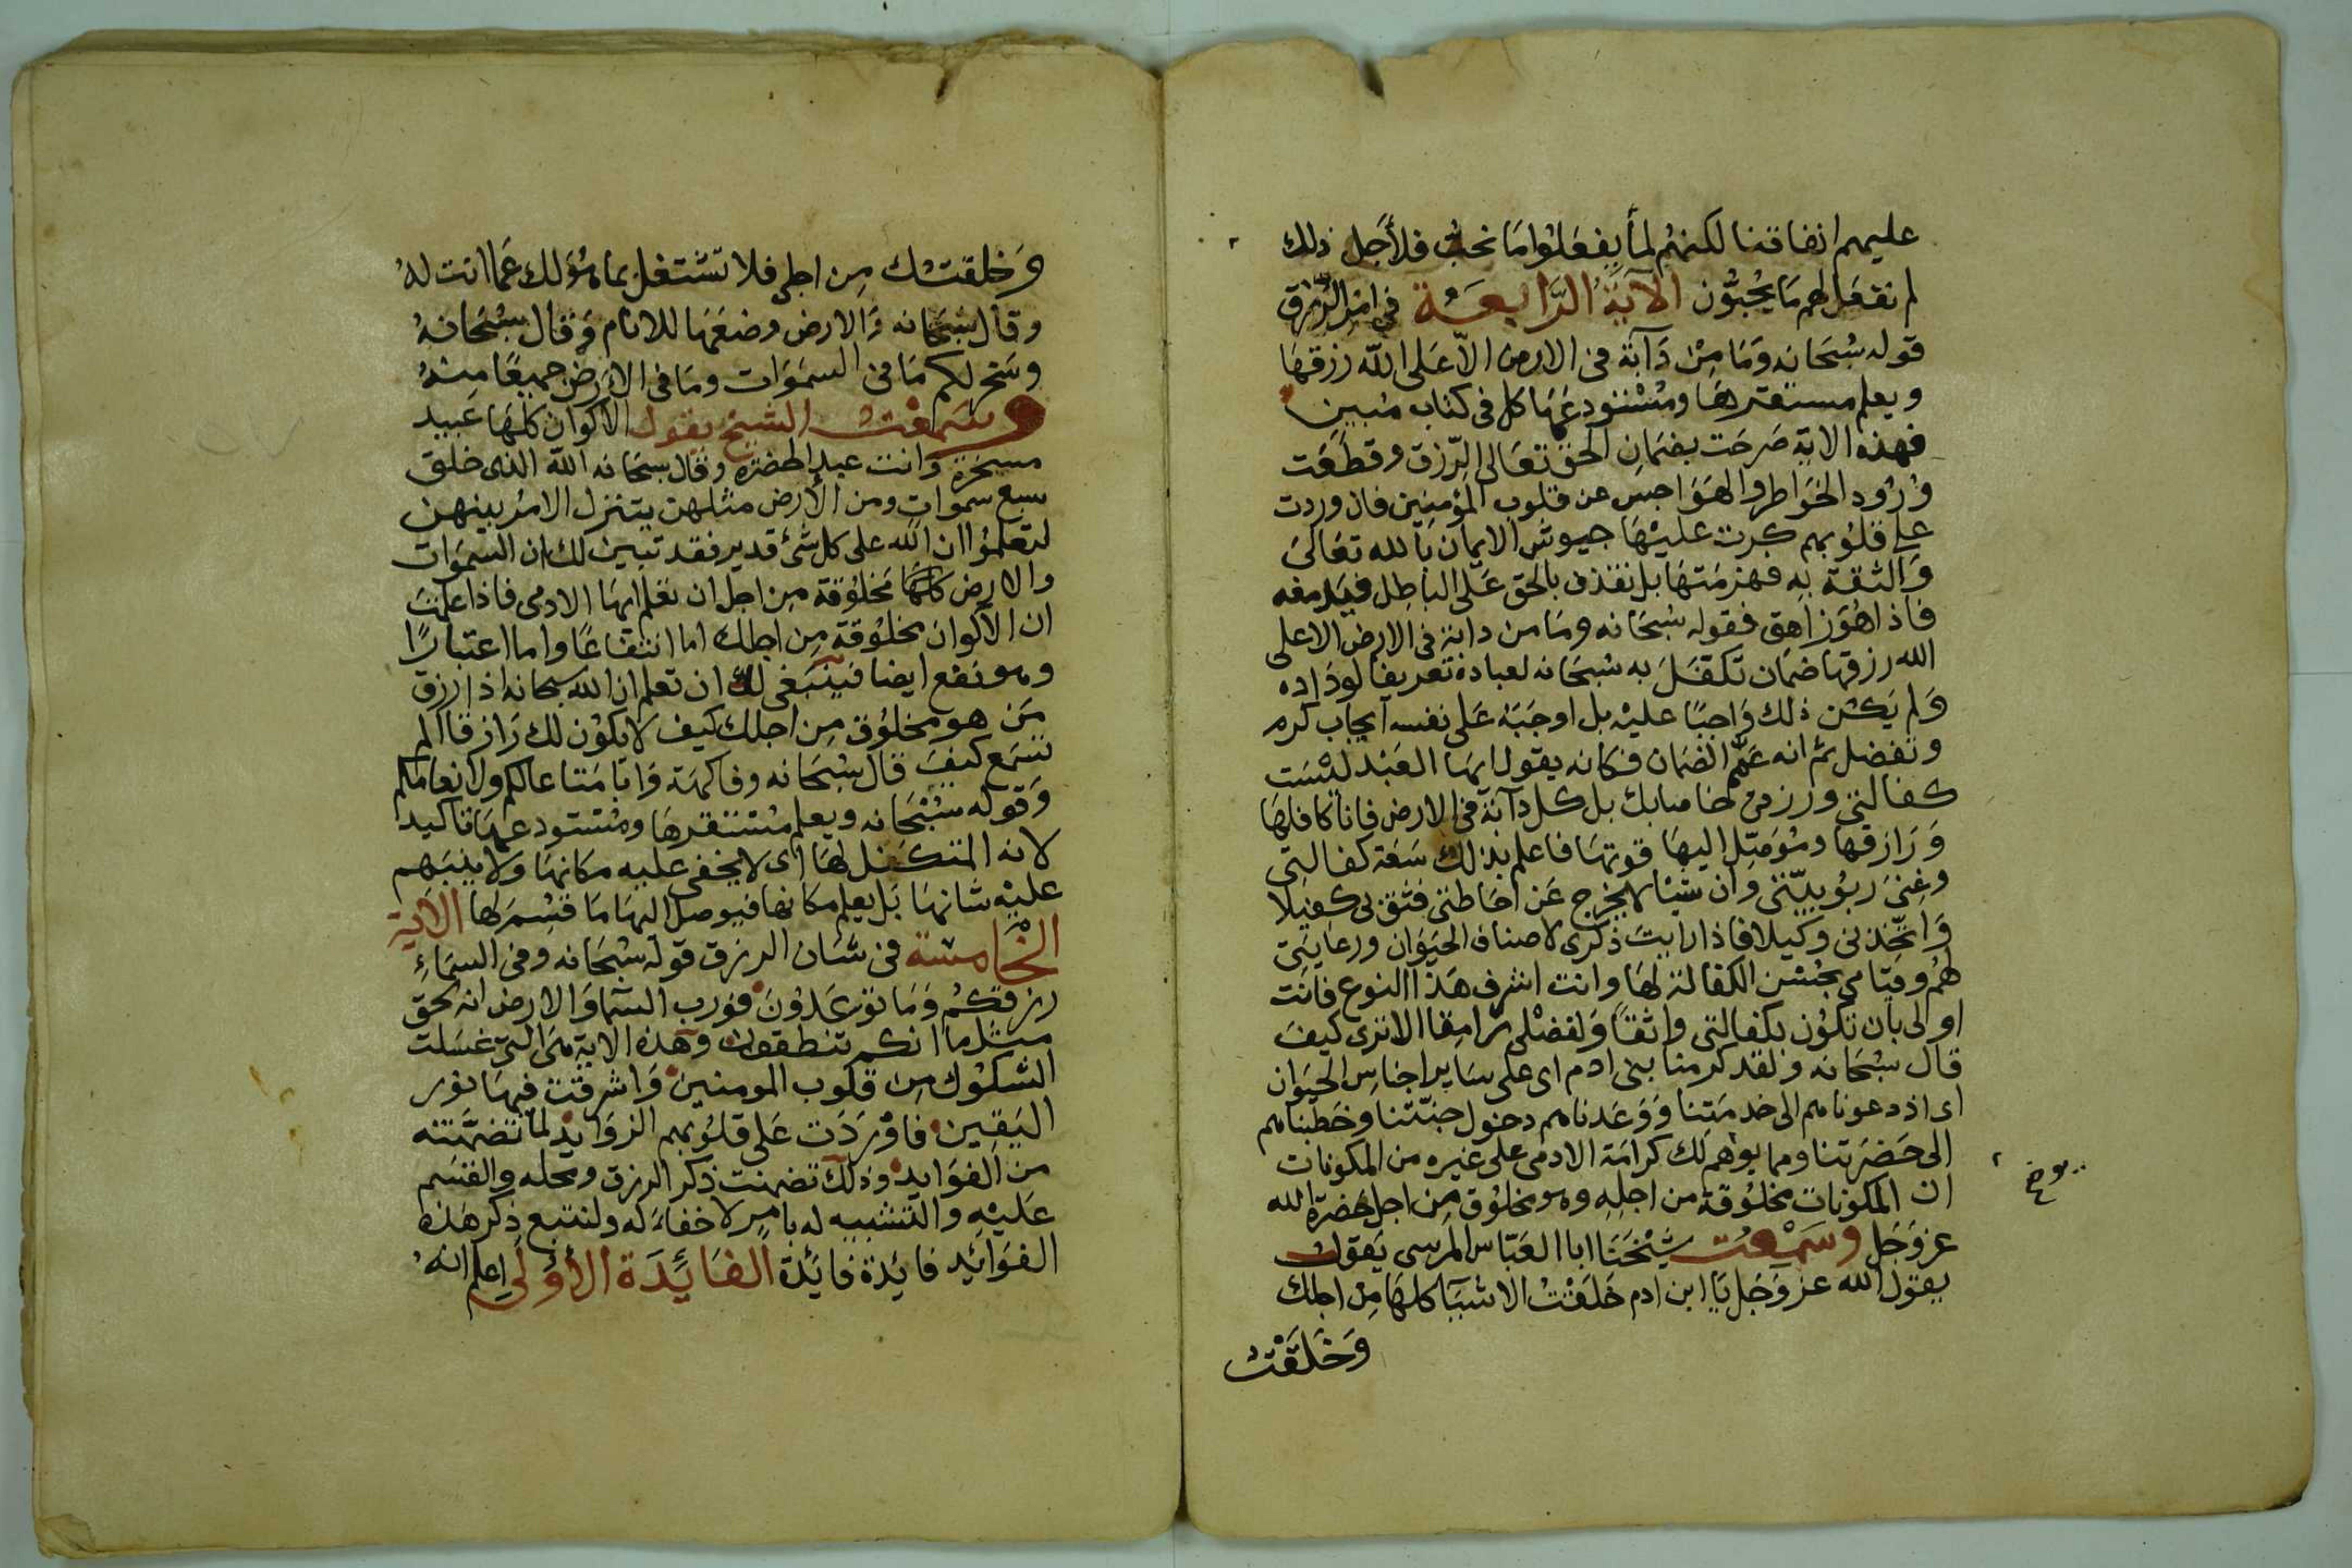 عليهم انفاقنا لكنهم لما يفعلوا ما نحب فلأجل ذلك
لم نفعل لهم ما يحبون الآية الرابعة في امر الرزق
قوله سبحانه وما من دآبة في الارض الا على الله رزقها
ويعلم مستقرها ومستودعها كل في كتاب مبين
فهذه الاية صرحت بضمان الحق تعالى الرزق وقطعت
ورود الخواطر والهواجس عن قلوب المؤمنين فان وردت
على قلوبهم كرت عليها جيوش الايمان بالله تعالى
والثقة به فهزمتها بل نقذف بالحق على الباطل فيدمغه
فاذا هو زاهق فقوله سبحانه وما من دابة في الارض الا على
الله رزقها ضمان تكفل به سبحانه لعباده تعريفا لوداده
ولم يكن ذلك واجبا عليه بل اوجبه على نفسه ايجاب كرم
وتفضل ثم انه عمم الضمان فكانه يقول ايها العبد ليست
كفالتي ورزقي خاصا بك بل كل دآبة في الارض فانا كافلها
ورازقها وموصل اليها قوتها فاعلم بذلك سعة كفالتي
وغنى ربوبيتي وان شيئا لا يخرج عن احاطتي فثق بي كفيلا
واتخذني وكيلا فاذا رايت ذكرى لاصناف الحيوان ورعايتي
لهم وقيامي بحسن الكفالة لها وانت اشرف هذا النوع فانت
اولى بان تكون بكفالتي واثقا ولفضلي رامقا الا ترى كيف
قال سبحانه ولقد كرمنا بني ادم اي على ساير اجناس الحيوان
اي اذ دعوناهم الى خدمتنا ووعدناهم دخول جنتنا وخطبناهم
الى حضرتنا ومما يوهم لك كرامة الادمي على غيره من المكونات
ان المكونات مخلوقة من اجله وهو مخلوق من اجل حضرة الله
عز وجل وسمعت شيخنا ابا العباس المرسي يقول
يقول الله عز وجل يا ابن ادم خلقت الاشيآ كلها من اجلك
وخلقت
وخلقتك من اجلي فلا تشتغل بما هو لك عما انت له
وقال سبحانه والارض وضعها للانام وقال سبحانه
وسخر لكم ما في السموات وما في الارض جميعا منه
وسمعت الشيخ يقول الاكوان كلها عبيد
مسخرة وانت عبد الحضرة وقال سبحانه الله الذي خلق
سبع سموات ومن الارض مثلهن يتنزل الامر بينهن
لتعلموا ان الله على كل شئ قدير فقد تبين لك ان السموات
والارض كلها مخلوقة من اجل ان تعلم ايها الادمي فاذا علمت
ان الاكوان مخلوقة من اجلك اما انتفاعا واما اعتبارا
وهو نفع ايضا فينبغي لك ان تعلم ان الله سبحانه اذا رزق
من هو مخلوق من اجلك كيف لا يكون لك رازقا الم
تسمع كيف قال سبحانه وفاكهة وابا متاعا لكم ولانعامكم
وقوله سبحانه ويعلم مستقرها ومستودعها تاكيدا
لانه المتكفل لها اي لا يخفى عليه مكانها ولا يبهم
عليه شانها بل يعلم مكانها فيوصل اليها ما قسم لها الآية
الخامسة في شان الرزق قوله سبحانه وفي السماء
رزقكم وما توعدون فورب السما والارض انه لحق
مثل ما انكم تنطقون وهذه الاية هي التي غسلت
الشكوك من قلوب المومنين واشرقت فيها نور
اليقين فاوردت على قلوبهم الزوايد لما تضمنته
من الفوايد وذلك تضمنت ذكر الرزق ومحله والقسم
عليه والتشبيه له بامر لا خفاء له ولنتبع ذكر هذه
الفوائد فايدة فايدة الفايدة الأولى اعلم انه